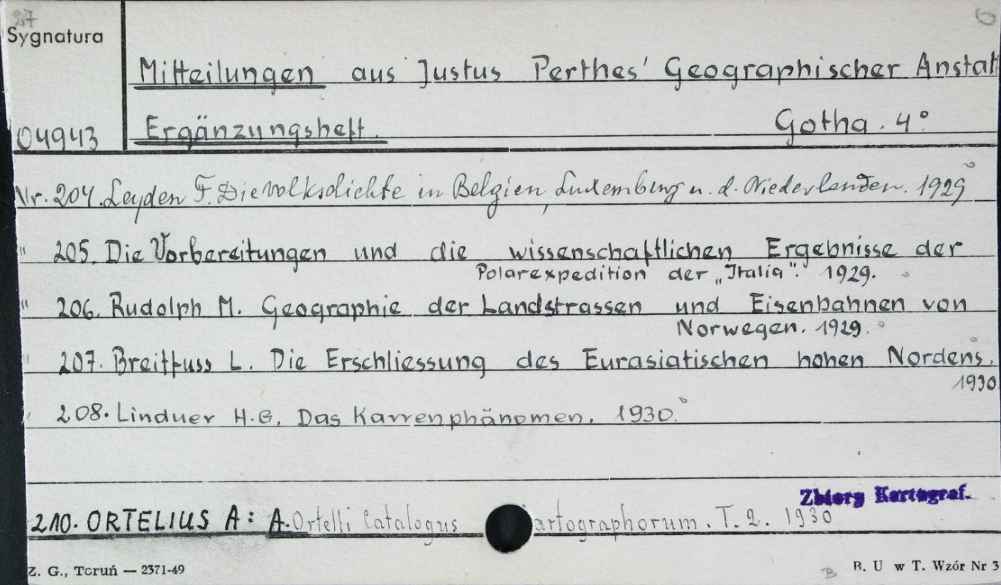 207
Sygnatura
Mitteilungen aus Justus Perthes' Geographischer Anstalt
04943 Ergänzungsheft. Gotha. 4°
Nr. 204. Leyden F. Die Volksdichte in Belgien, Luxemburg u. d. Niederlanden. 1929
" 205. Die Vorbereitungen und die wissenschaftlichen Ergebnisse der
Polarexpedition der „Italia". 1929.
" 206. Rudolph M. Geographie der Landstrassen und Eisenbahnen von
Norwegen. 1929.
" 207. Breitfuss L. Die Erschliessung des Eurasiatischen hohen Nordens.
1930
" 208. Linduer H.G. Das Karrenphänomen. 1930.
Zbiory Kartograf.
210. ORTELIUS A: A. Ortelli Catalogus cartographorum. T. 2. 1930
Z. G., Toruń — 2371-49
B. U w T. Wzór Nr 3